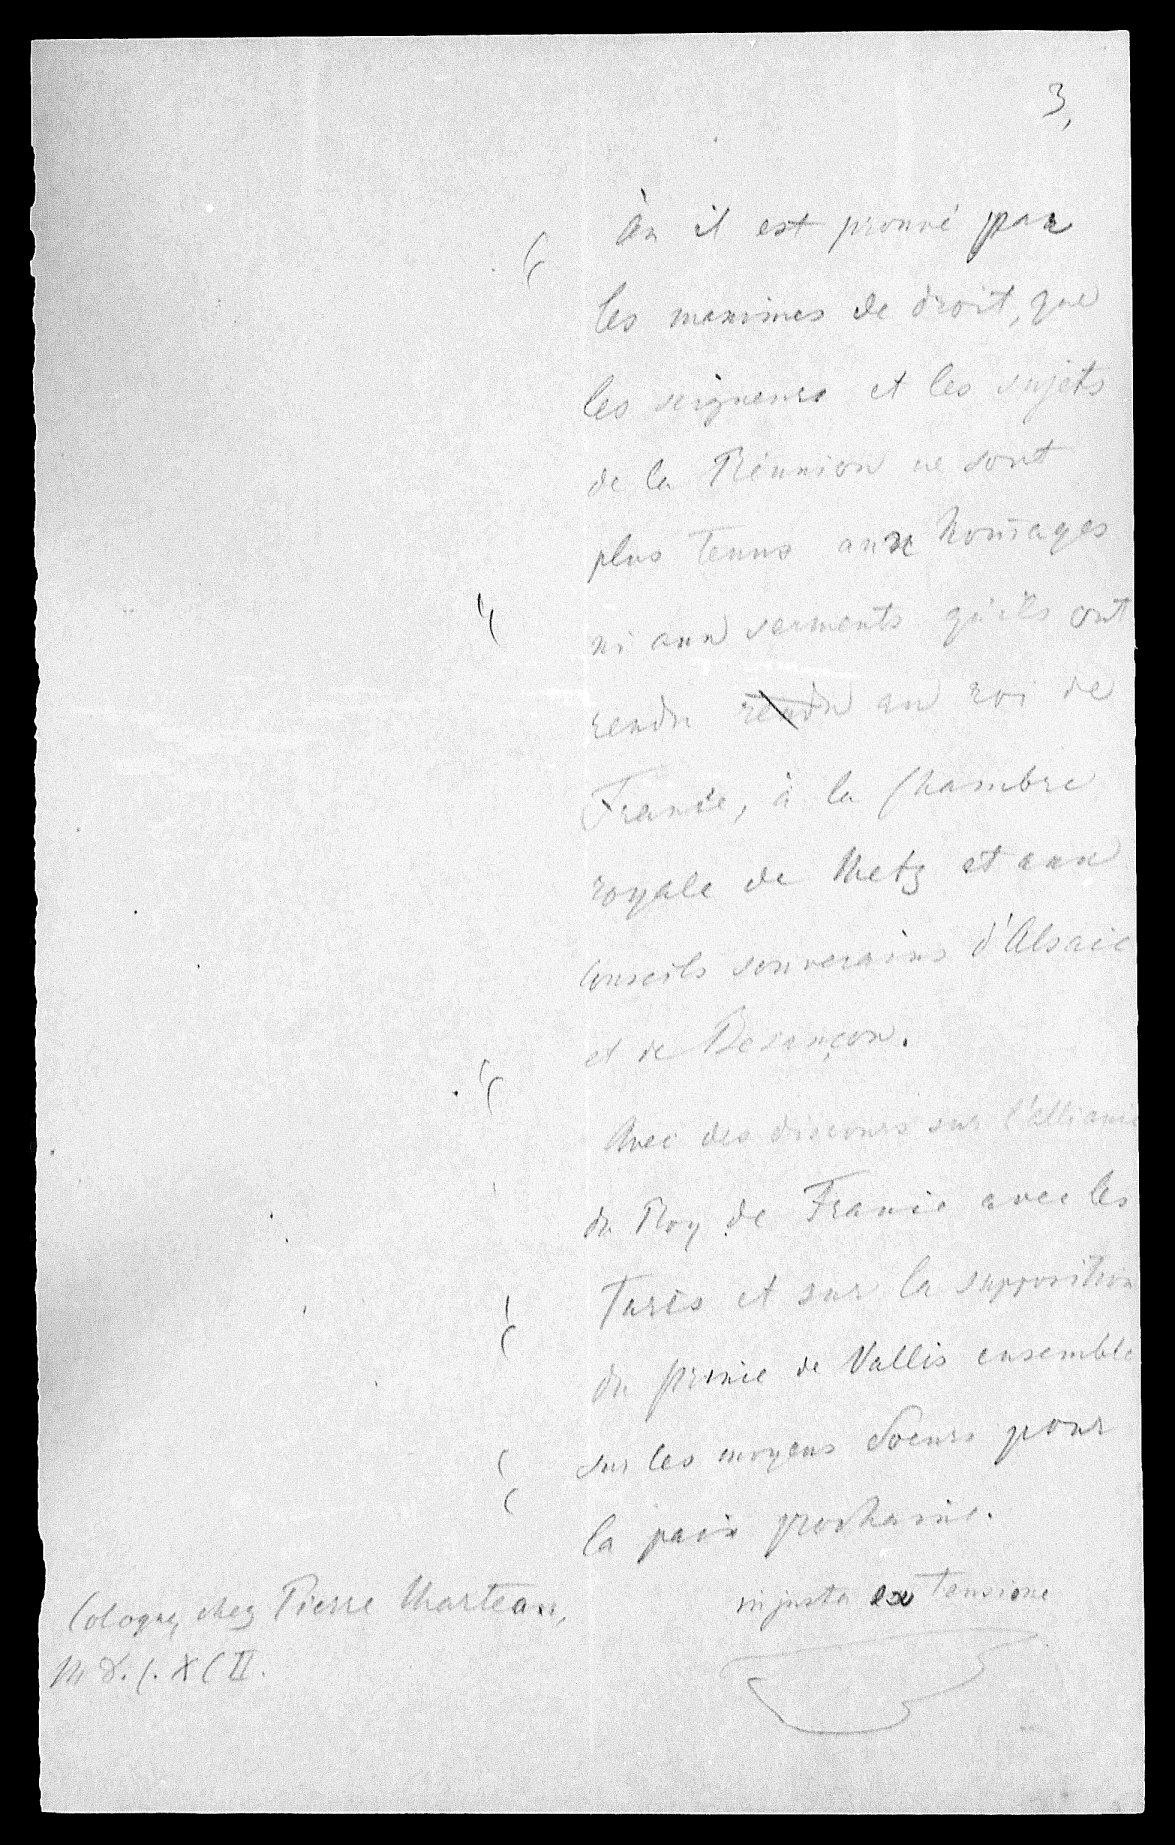 3,
Où il est prouvé par
les maximes de droit, que
les seigneurs et les sujets
de la Réunion ne sont
plus tenus aux homages
ni aux serments qu'ils ont
rendu rendu au roi de
France, à la Chambre
royale de Metz et aux
Conseils souverains d'Alsace
et de Besançon.
Avec des discours sur l'alliance
du Roy de France avec les
Turcs et sur la supposition
du prince de Vallis ensemble
sur les moyens seurs pour
la paix prochaine.
injusta extensione
Cologne, chez Pierre Marteau,
M D. C. XC II.